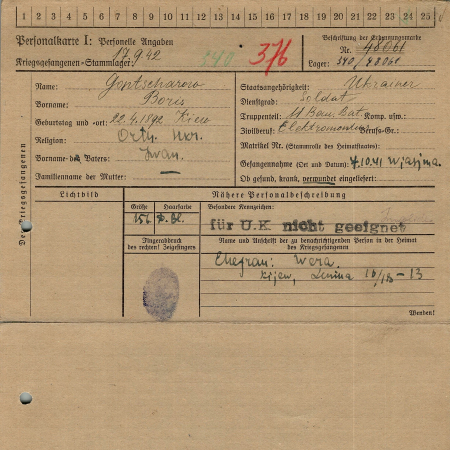 1 2 3 4 5 6 7 8 9 10 11 12 13 14 15 16 17 18 19 20 21 22 23 24 25
Personalkarte I: Personelle Angaben
Kriegsgefangenen-Stammlager: 17.9.42
340 376
Beschriftung der Erkennungsmarke
Nr. 48061
Lager: 340/48061
Des Kriegsgefangenen
Name: Gontscharow
Vorname: Boris
Geburtstag und -ort: 22.4.1892 Kiew
Religion: Orth.
Vorname des Vaters: Iwan
Familienname der Mutter: —
Staatsangehörigkeit: Ukrainer
Dienstgrad: Soldat
Truppenteil: Bau. Bat. Kom. usw.:
Zivilberuf: Elektromonteur Berufs-Gr.:
Matrikel Nr. (Stammrolle des Heimatstaates):
Gefangennahme (Ort und Datum): 7.10.41 Wjasjma.
Ob gesund, krank, verwundet eingeliefert:
Lichtbild
Nähere Personalbeschreibung
Größe Haarfarbe
Besondere Kennzeichen:
für U.K nicht geeignet
Fingerabdruck
des rechten! Zeigefingers
Name und Anschrift der zu benachrichtigenden Person in der Heimat
des Kriegsgefangenen
Ehefrau: Wera
Kijew, Lenina 16/18 – 13
Wenden!